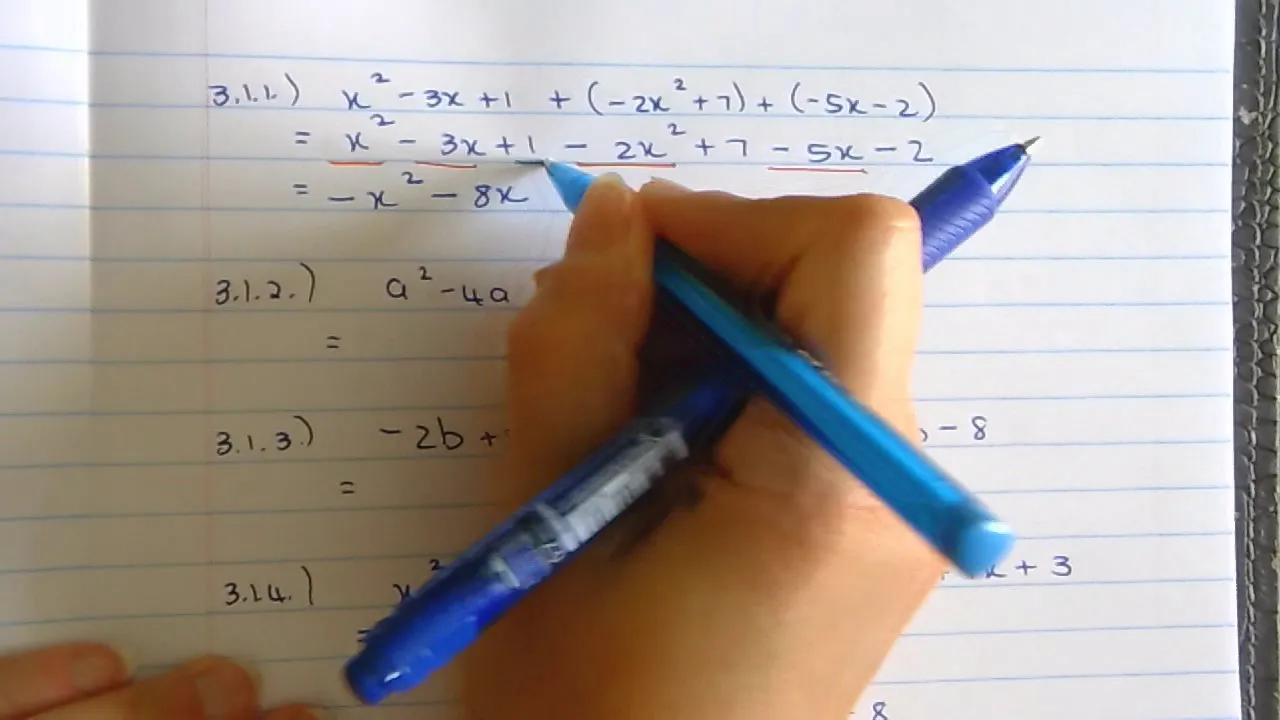 3.1.1.) x² - 3x + 1 + (-2x² + 7) + (-5x - 2)
= x² - 3x + 1 - 2x² + 7 - 5x - 2
= -x² - 8x
3.1.2.) a² - 4a
=
3.1.3.) -2b + - 8
=
3.1.4.) x² x + 3
=
8